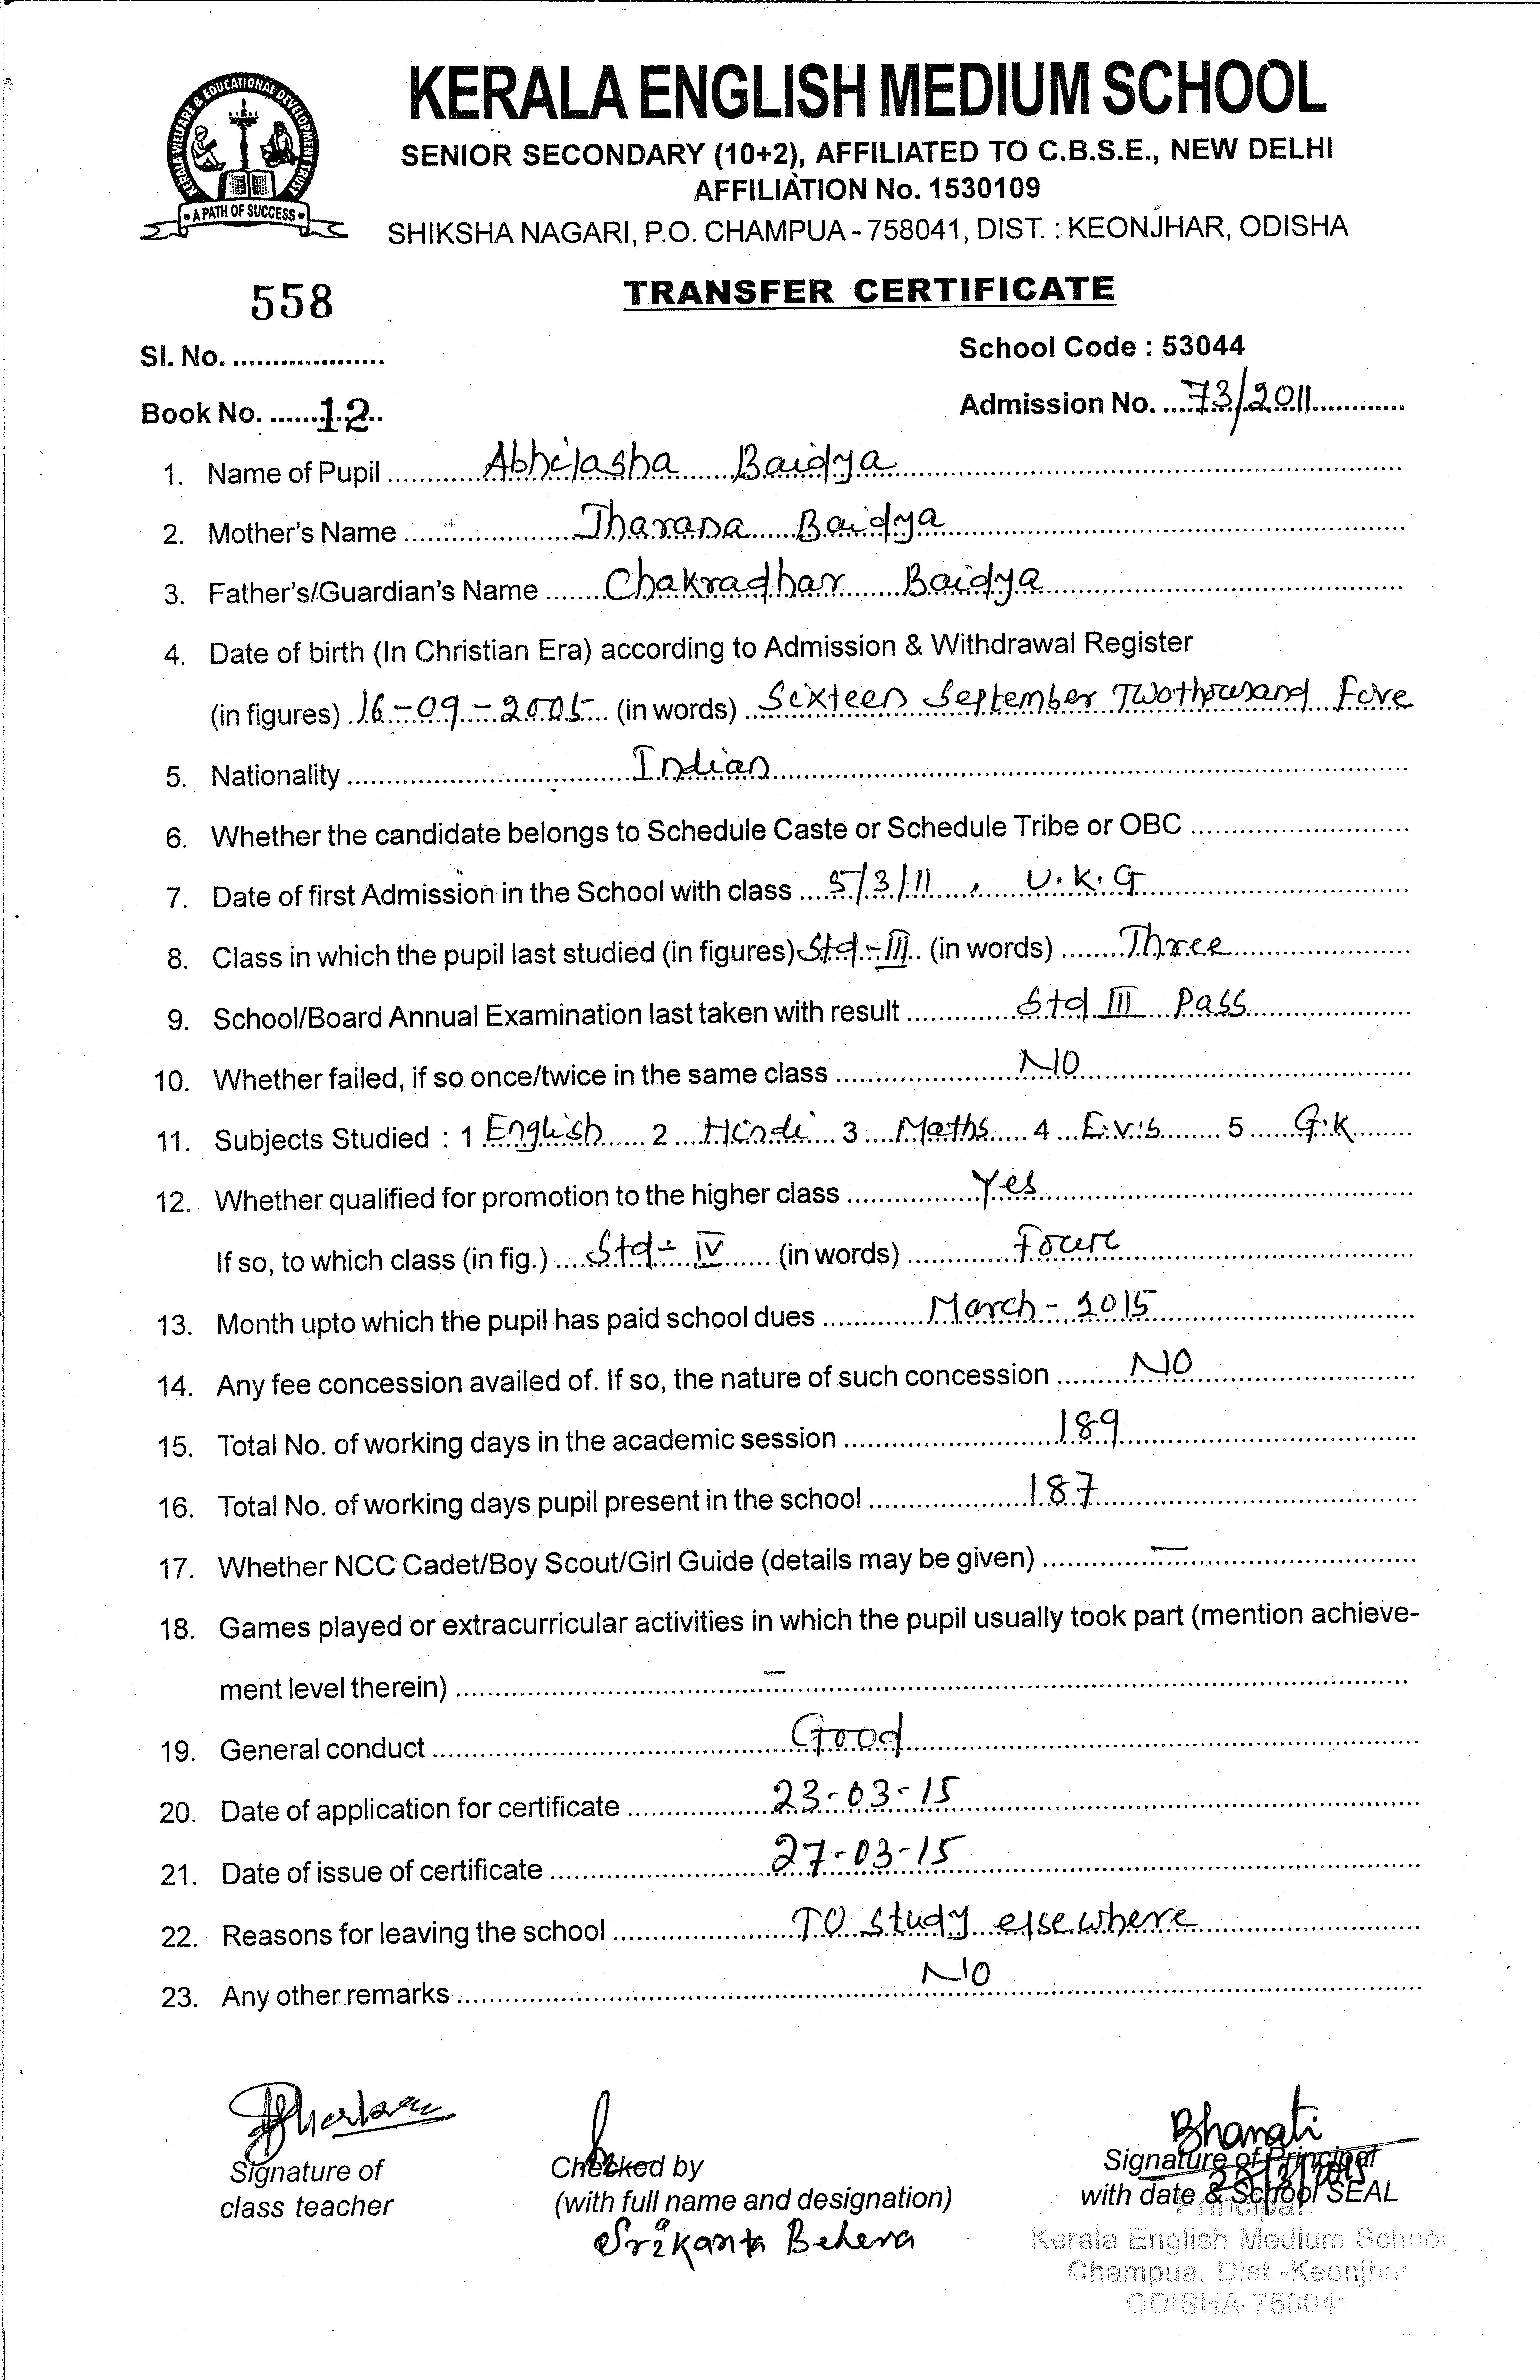 KERALA ENGLISH MEDIUM SCHOOL
KERALA WELFARE & EDUCATIONAL DEVELOPMENT TRUST
A PATH OF SUCCESS
SENIOR SECONDARY (10+2), AFFILIATED TO C.B.S.E., NEW DELHI
AFFILIATION No. 1530109
SHIKSHA NAGARI, P.O. CHAMPUA - 758041, DIST. : KEONJHAR, ODISHA
558 TRANSFER CERTIFICATE
Sl. No. ................... School Code : 53044
Book No. ......12.. Admission No. ....73/2011............
1. Name of Pupil ............Abhilasha Baidya............
2. Mother's Name ............Tharana Baidya............
3. Father's/Guardian's Name .......Chakradhar Baidya............
4. Date of birth (In Christian Era) according to Admission & Withdrawal Register
(in figures) 16-09-2005 (in words) Sixteen September Twothousand Five
5. Nationality ............Indian............
6. Whether the candidate belongs to Schedule Caste or Schedule Tribe or OBC ............
7. Date of first Admission in the School with class ....5/3/11 , U.K.G............
8. Class in which the pupil last studied (in figures) Std-III (in words) ........Three............
9. School/Board Annual Examination last taken with result ............Std III Pass............
10. Whether failed, if so once/twice in the same class ............NO............
11. Subjects Studied : 1 English 2 Hindi 3 Maths 4 E.v.s 5 G.K
12. Whether qualified for promotion to the higher class ............Yes............
If so, to which class (in fig.) ....Std- IV...... (in words) ............Four............
13. Month upto which the pupil has paid school dues ............March-2015............
14. Any fee concession availed of. If so, the nature of such concession ........NO............
15. Total No. of working days in the academic session ............189............
16. Total No. of working days pupil present in the school ............187............
17. Whether NCC Cadet/Boy Scout/Girl Guide (details may be given) ............—............
18. Games played or extracurricular activities in which the pupil usually took part (mention achieve-
ment level therein) ............—............
19. General conduct ............Good............
20. Date of application for certificate ............23-03-15............
21. Date of issue of certificate ............27-03-15............
22. Reasons for leaving the school ............TO study elsewhere............
23. Any other remarks ............NO............
Bharati
Signature of Checked by Signature of Principal
class teacher (with full name and designation) with date & School SEAL
Srikanta Behera
Principal
Kerala English Medium School
Champua, Dist.-Keonjhar
ODISHA-758041